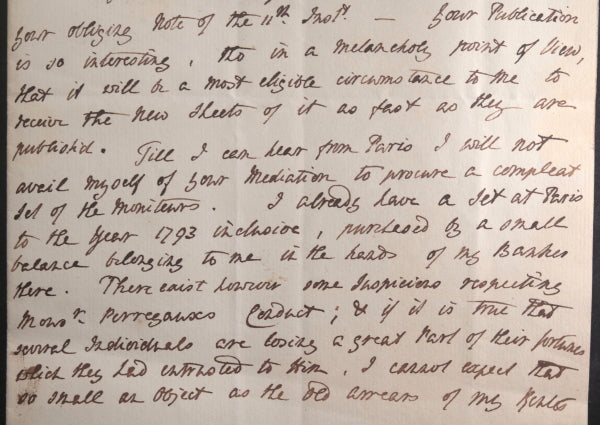 your obliging Note of the 11th. Inst. — Your Publication
is so interesting, tho in a melancholy point of View,
that it will be a most eligible circumstance to me to
receive the new sheets of it as fast as they are
publish'd. Till I can hear from Paris I will not
avail myself of your Mediation to procure a compleat
set of the Moniteurs. I already have a set at Paris
to the Year 1793 inclusive, purchased by a small
balance belonging to me in the hands of my Banker
there. There exist however some suspicions respecting
Monsr. Perregaux's Conduct; & if it is true that
several Individuals are losing a great Part of their fortunes
which they had entrusted to Him, I cannot expect that
so small an Object as the old arrears of my Rents